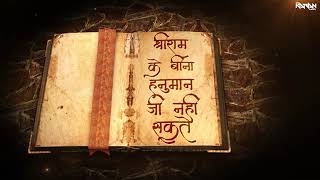 श्रीराम
के बीना
हनुमान
जी नही
सकते